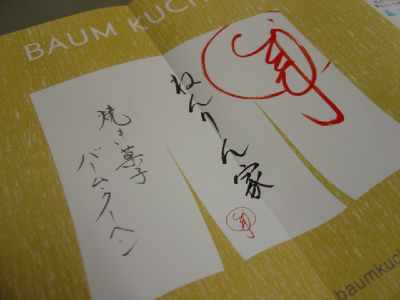 BAUM KUCH
ねんりん家
焼き菓子
バームクーヘン
baumkuch